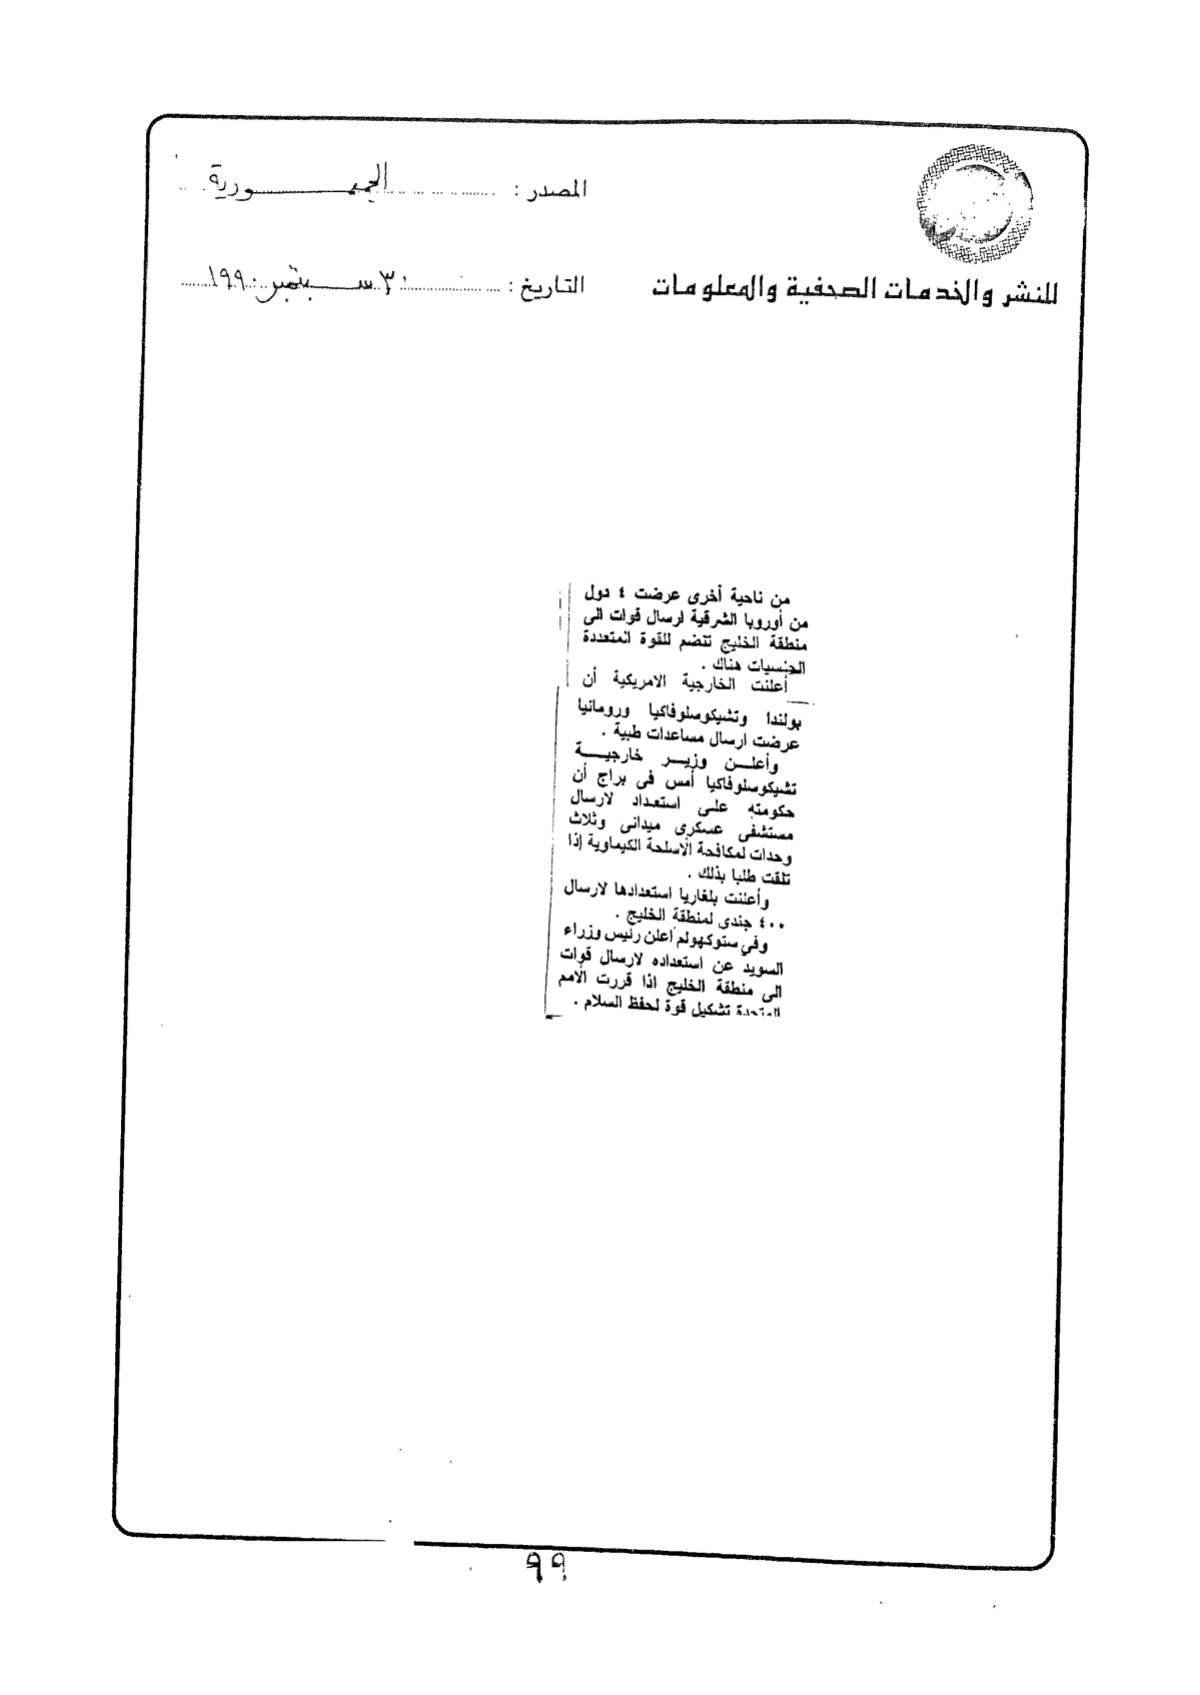 المصدر : الجمهورية
للنشر والخدمات الصحفية والمعلومات
التاريخ : ٣ سبتمبر ١٩٩٠
من ناحية أخرى عرضت ٤ دول
من أوروبا الشرقية ارسال قوات الى
منطقة الخليج تنضم للقوة المتعددة
الجنسيات هناك .
أعلنت الخارجية الامريكية أن
بولندا وتشيكوسلوفاكيا ورومانيا
عرضت ارسال مساعدات طبية .
وأعلن وزير خارجية
تشيكوسلوفاكيا أمس فى براج أن
حكومته على استعداد لارسال
مستشفى عسكرى ميدانى وثلاث
وحدات لمكافحة الاسلحة الكيماوية إذا
تلقت طلبا بذلك .
وأعلنت بلغاريا استعدادها لارسال
٤٠٠ جندى لمنطقة الخليج .
وفي ستوكهولم أعلن رئيس وزراء
السويد عن استعداده لارسال قوات
الى منطقة الخليج اذا قررت الأمم
المتحدة تشكيل قوة لحفظ السلام .
٩٩